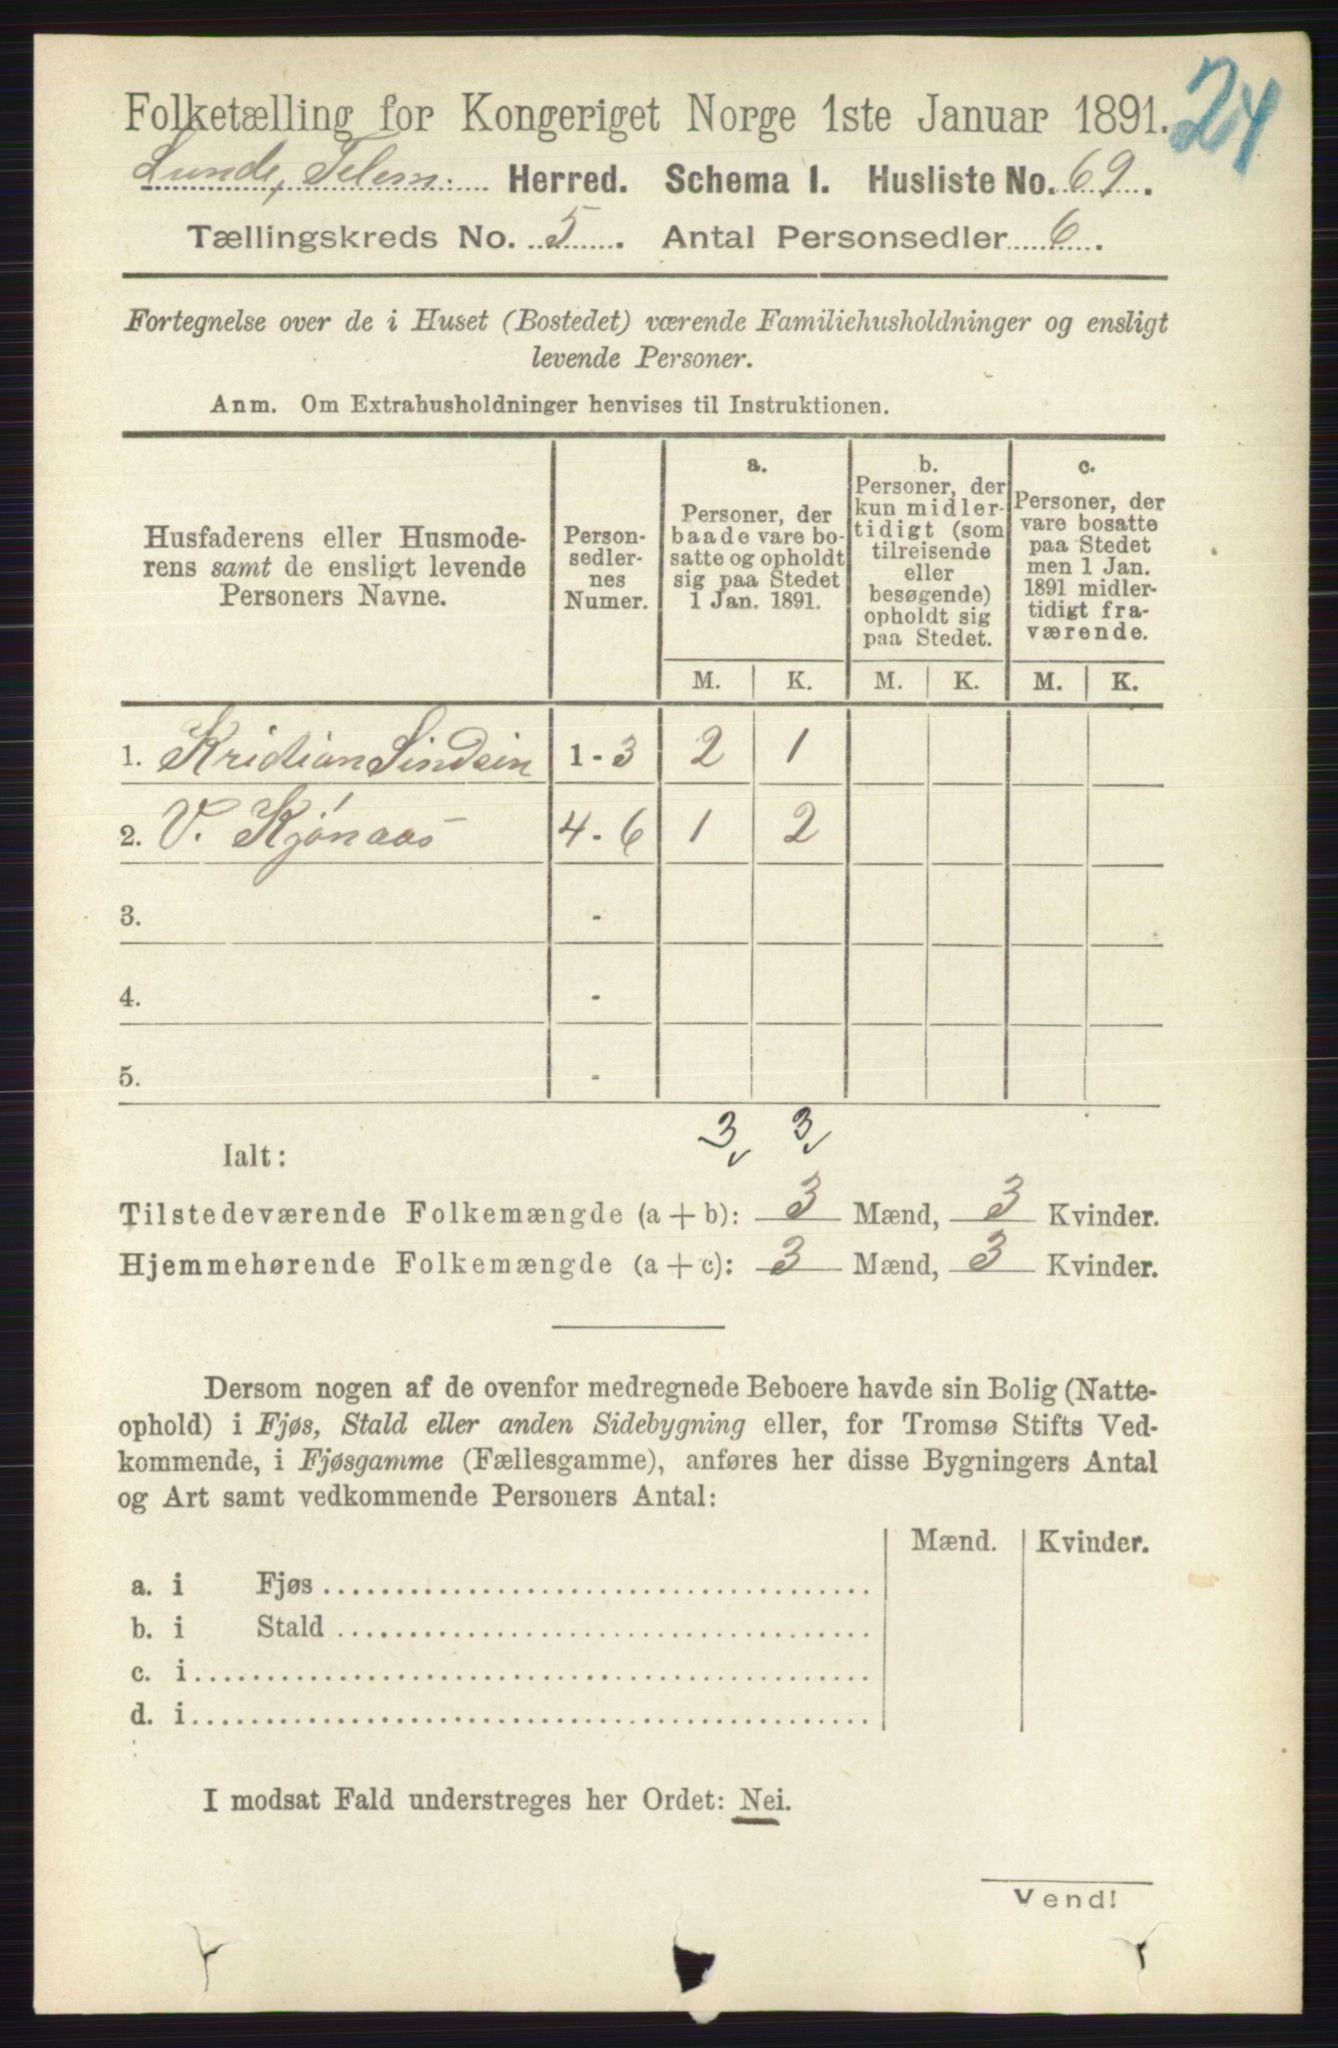 24
Folketælling for Kongeriget Norge 1ste Januar 1891.
Lunde, Telem. Herred. Schema I. Husliste No. 69.
Tællingskreds No. 5. Antal Personsedler 6.
Fortegnelse over de i Huset (Bostedet) værende Familiehusholdninger og ensligt
levende Personer.
Anm. Om Extrahusholdninger henvises til Instruktionen.
Husfaderens eller Husmode-
rens samt de ensligt levende
Personers Navne.
Person-
sedler-
nes
Numer.
a.
Personer, der
baade vare bo-
satte og opholdt
sig paa Stedet
1 Jan. 1891.
b.
Personer, der
kun midler-
tidigt (som
tilreisende
eller
besøgende)
opholdt sig
paa Stedet.
c.
Personer, der
vare bosatte
paa Stedet
men 1 Jan.
1891 midler-
tidigt fra-
værende.
M. K. M. K. M. K.
1. Kristian Sindsin 1 - 3 2 1
2. V. Kjónaas 4 - 6 1 2
3. -
4. -
5. -
3 3
Ialt:
Tilstedeværende Folkemængde (a + b): 3 Mænd, 3 Kvinder.
Hjemmehørende Folkemængde (a + c): 3 Mænd, 3 Kvinder.
Dersom nogen af de ovenfor medregnede Beboere havde sin Bolig (Natte-
ophold) i Fjøs, Stald eller anden Sidebygning eller, for Tromsø Stifts Ved-
kommende, i Fjøsgamme (Fællesgamme), anføres her disse Bygningers Antal
og Art samt vedkommende Personers Antal:
Mænd. Kvinder.
a. i Fjøs
b. i Stald
c. i
d. i
I modsat Fald understreges her Ordet: Nei.
Vend!